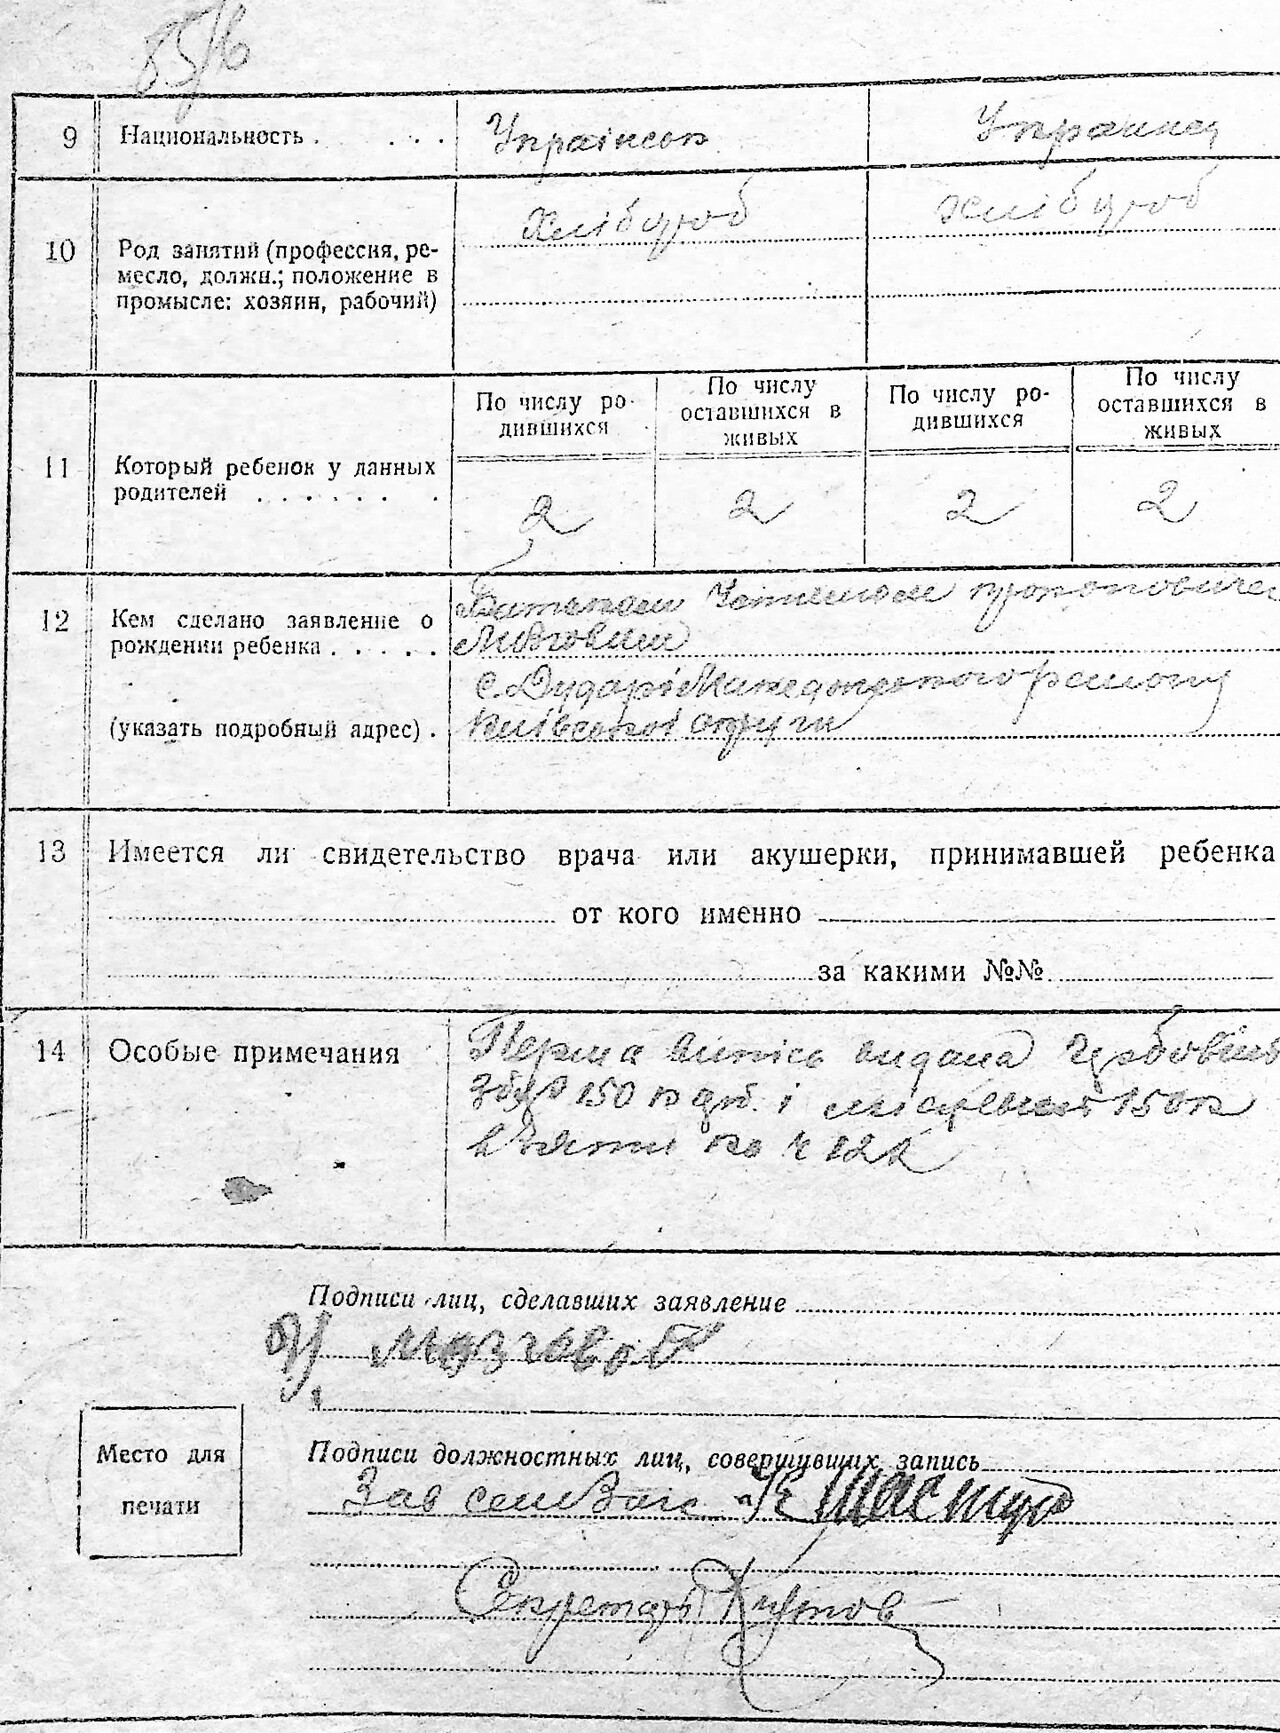 85/в
9 Национальность . . . . Українськ Украинец
10 Род занятий (профессия, ре-
месло, должн.; положение в
промысле: хозяин, рабочий)
хлібороб хлібороб
11 Который ребенок у данных
родителей . . . . . . .
По числу ро-
дившихся
По числу
оставшихся в
живых
По числу ро-
дившихся
По числу
оставшихся в
живых
2 2 2 2
12 Кем сделано заявление о
рождении ребенка . . . . .
(указать подробный адрес) .
Батьком
с. Дударі району
Київської округи
13 Имеется ли свидетельство врача или акушерки, принимавшей ребенка
от кого именно
за какими №№
14 Особые примечания
Перша випись видана
150 к і 150 к
взяти по
Подписи лиц, сделавших заявление
Мозговой
Место для
печати
Подписи должностных лиц, совершивших запись
Зав
Секретарь